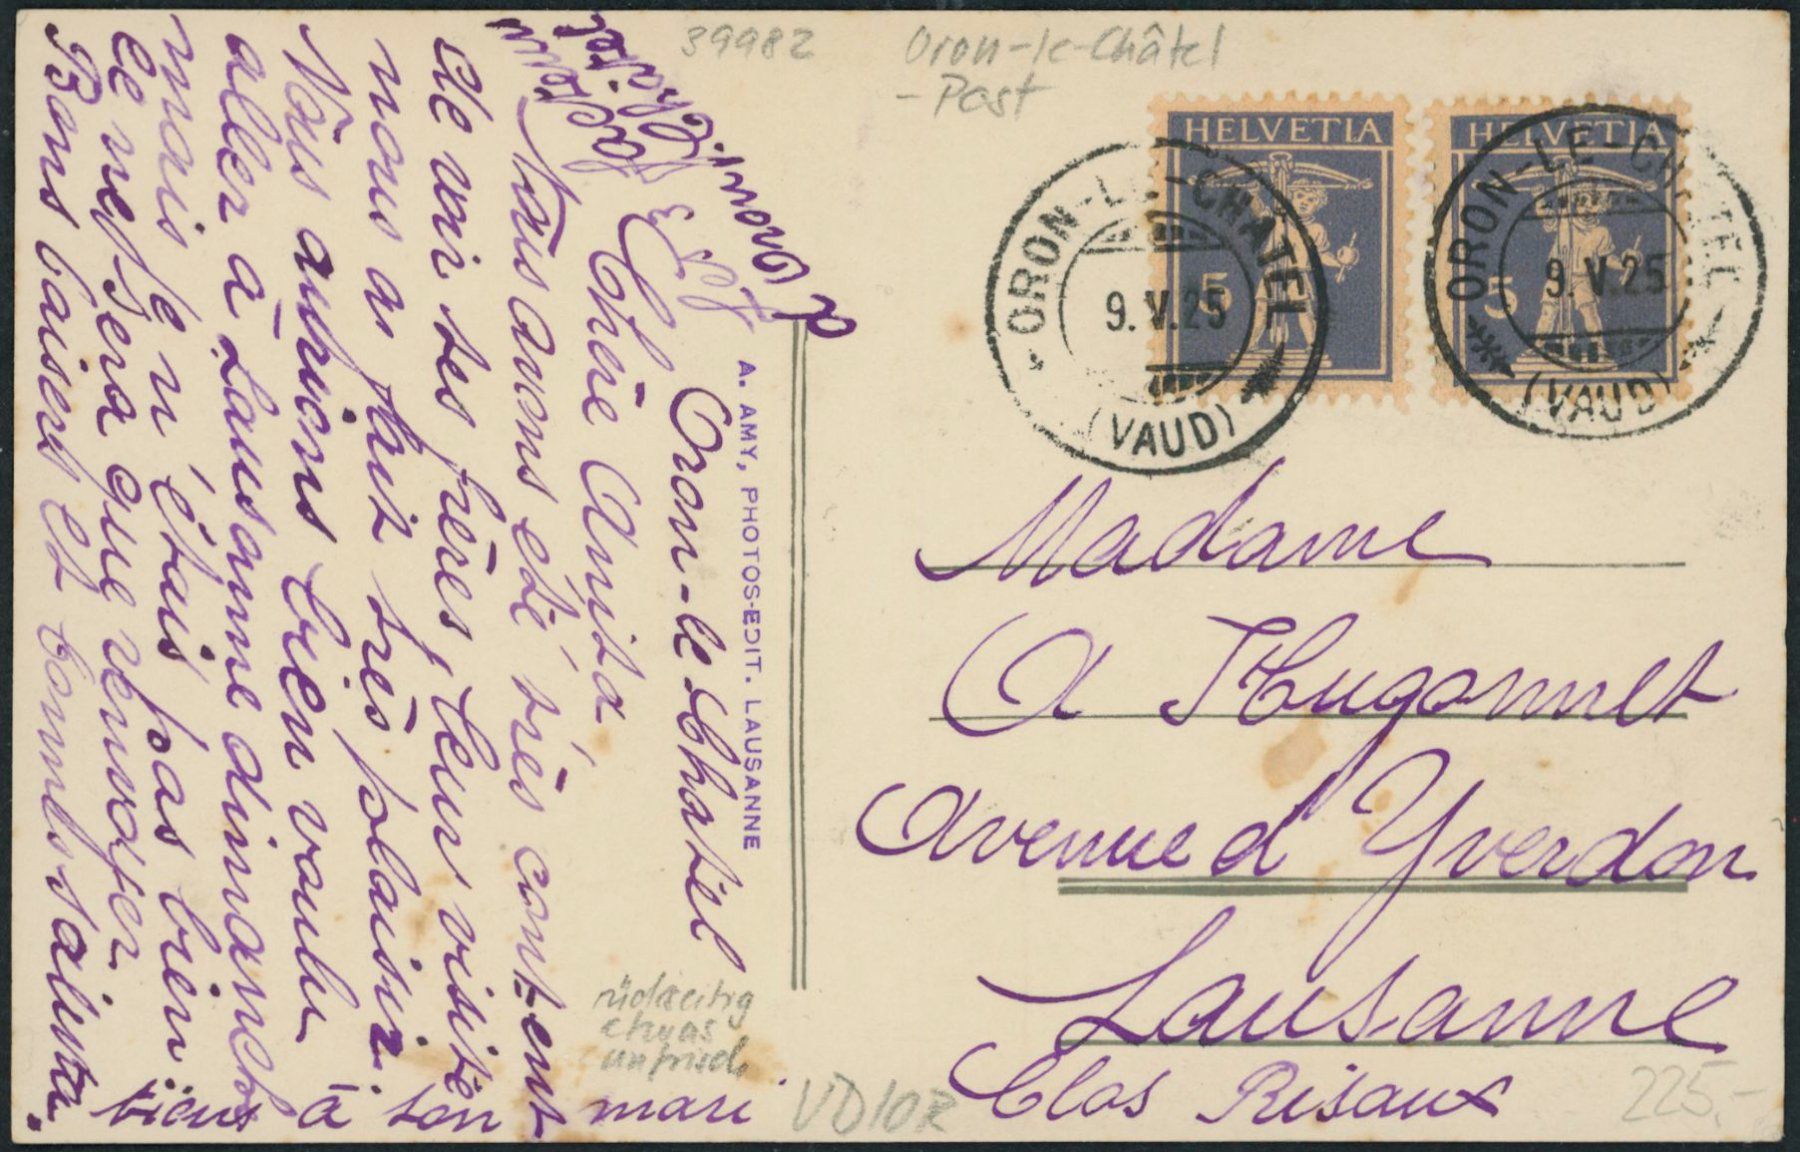 39982
Oron-le-Châtel
- Post
HELVETIA
5
HELVETIA
5
ORON-LE-CHÂTEL
9.V.25
(VAUD)
ORON-LE-CHÂTEL
9.V.25
(VAUD)
A. AMY, PHOTOS-EDIT. LAUSANNE
Oron-le-Chatel
Chère Anita,
Nous avons été très content
de voir tes frères, leur visite
nous a fait très plaisir.
Nous aurions bien voulu
aller à Lausanne dimanche
mais je n'étais pas bien
ce ne sera que renvoyer.
Bons baisers et bonnes saluta-
tions à ton mari
Madame
A Hugonnet
Avenue d'Yverdon
Lausanne
Clos Risaux
rückseitig
etwas
unfrisch
VD10R
225,-